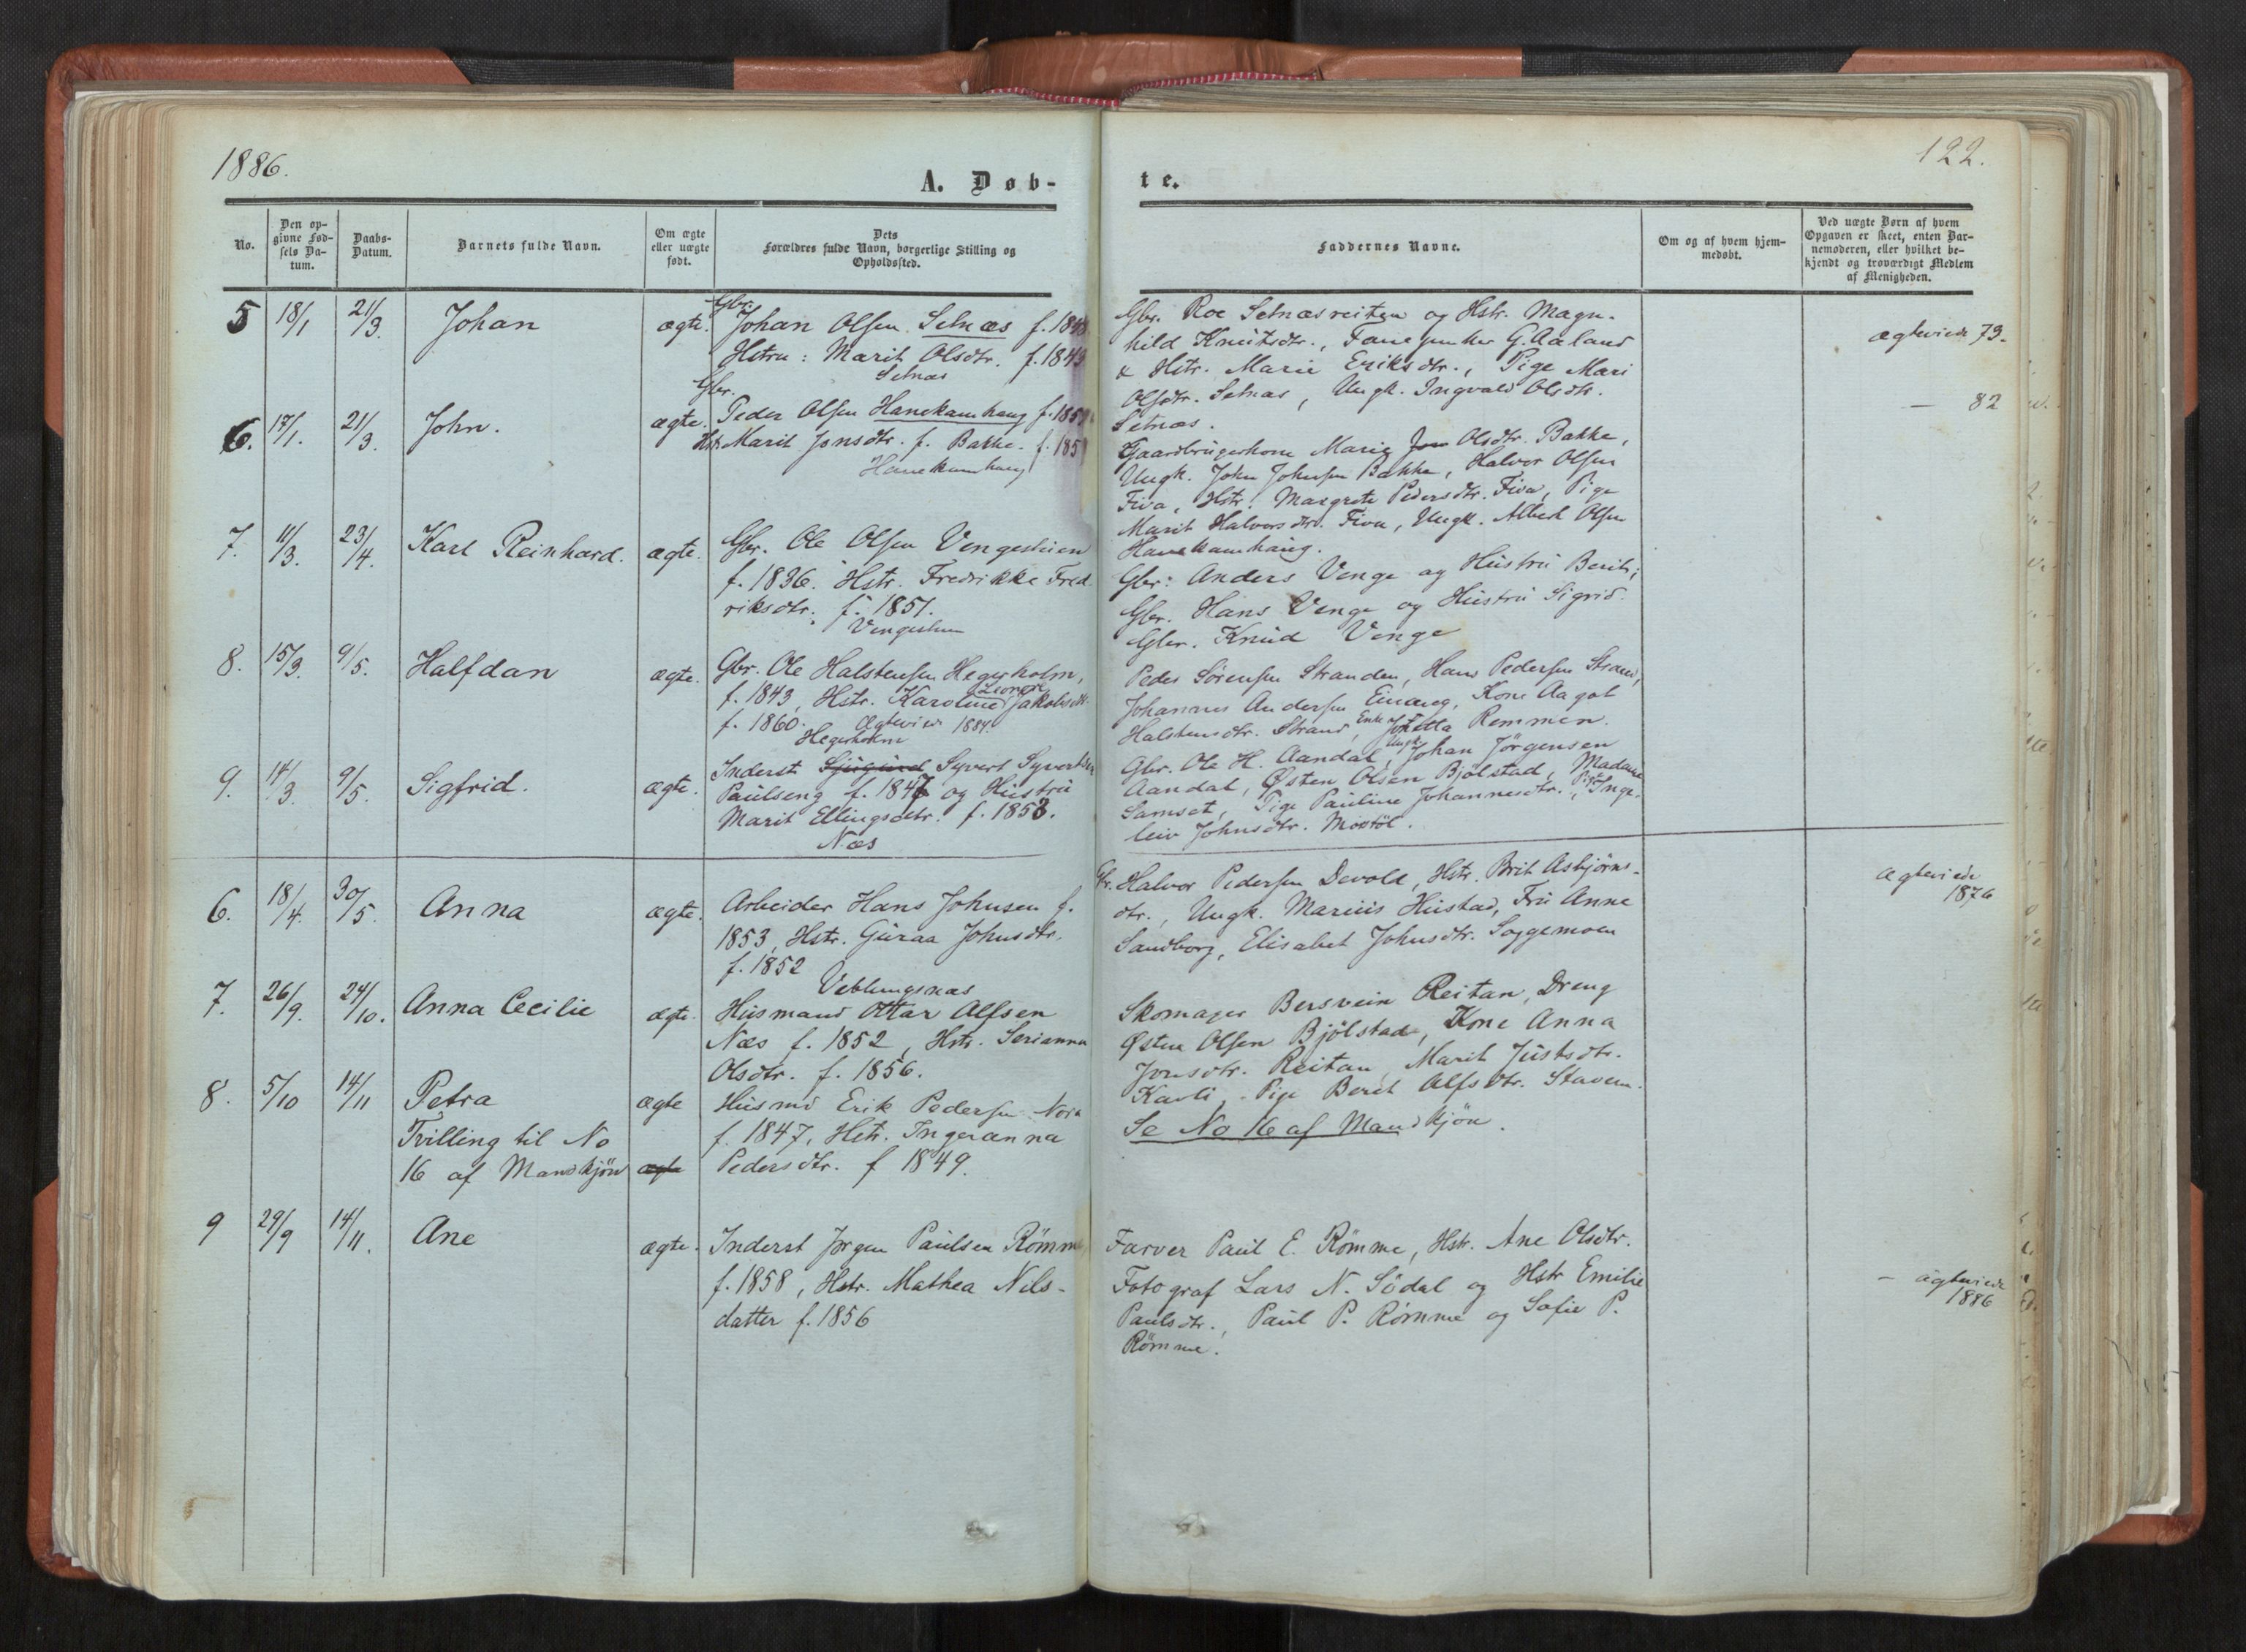 1886.
122.
A. Døb-
te.
No.
Den op-
givne Fød-
sels Da-
tum.
Daabs-
Datum.
Barnets fulde Navn.
Om ægte
eller uægte
født.
Dets
Forældres fulde Navn, borgerlige Stilling og
Opholdssted.
Faddernes Navne.
Om og af hvem hjem-
medøbt.
Ved uægte Børn af hvem
Opgaven er skeet, enten Bar-
nemoderen, eller hvilket be-
kjendt og troværdigt Medlem
af Menigheden.
5 18/1 21/3. Johan ægte.
Gbr.
Johan Olsen Setnæs f.
Hstru: Marit Olsdtr. f. 1843
Setnæs
Gbr. Roe Setnæsreiten og Hstr. Magn-
hild Knutsdtr., G. Aaland
& Hstr. Marie Eriksdtr., Pige Mari
Olsdtr. Setnæs, Ungk. Ingvald Olsdtr.
Setnæs.
ægteviede 73.
6. 17/1. 21/3. John. ægte.
Gbr.
Peder Olsen Hanekamhaug f.
Hstr. Marit Jonsdtr. f. Bakke. f.
Hanekamhaug
Gaardbrugerkone Marie Olsdtr. Bakke,
Ungk. John Johnsen Bakke, Halvor Olsen
Fiva, Hstr. Margrete Pedersdtr. Fiva, Pige
Marit Halvorsdtr. Fiva, Ungk. Albert Olsen
Hanekamhaug.
— 82
7. 11/3. 23/4. Karl Reinhard. ægte.
Gbr. Ole Olsen Vengestuen
f. 1836. Hstr. Fredrikke Fred-
riksdtr. f. 1851.
Vengestuen
Gbr: Anders Venge og Hustru Berit;
Gbr. Hans Venge og Hustru Sigrid.
Gbr. Knud Venge
8. 15/3. 9/5. Halfdan ægte.
Gbr. Ole Halstensen Hegerholm,
f. 1843, Hstr. Karoline Leonore Jakobsdtr.
f. 1860. Ægteviede 1884.
Hegerholm
Peder Sörensen Stranden, Hans Pedersen Strand,
Johannes Andersen Einang, Kone Aagot
Halstensdtr. Strand, Enke Remmen.
9. 14/3. 9/5. Sigfrid. ægte.
Inderst Syvert Syvertsen
Paulseng f. 1847 og Hustru
Marit Ellingsdtr. f. 1853.
Næs
Gbr. Ole H. Aandal, Ungk. Johan Jörgensen
Aandal, Østen Olsen Bjölstad, Madame
Samset, Pige Pauline Johannesdtr., Pige Inge-
leiv Johnsdtr. Mostöl.
6. 18/4. 30/5. Anna ægte.
Arbeider Hans Johnsen f.
1853, Hstr. Guraa Johnsdtr.
f. 1852
Veblungsnæs
Gbr. Halvor Pedersen Devold, Hstr. Brit Asbjörns-
dtr., Ungk. Marius Hustad, Fru Anne
Sandborg, Elisabet Johnsdtr. Soggemoen
ægteviede
1876
7. 26/9. 24/10. Anna Cecilie ægte.
Husmand Ottar Alfsen
Næs f. 1852, Hstr. Serianna
Olsdtr. f. 1856.
Skomager Bersvein Reitan, Dreng
Østen Olsen Bjölstad, Kone Anna
Jonsdtr. Reitan, Marit Justsdtr.
Kavli, Pige Beret Alfsdtr. Stavem.
8. 5/10 14/11 Petra ægte
Tvilling til No
16 af Mandkjön ægte
Husmd Erik Pedersen
f. 1847, Hstr. Ingeranna
Pedersdtr. f 1849.
Se No 16 af Mandkjön.
9 29/9 14/11. Ane ægte.
Inderst Jørgen Paulsen Römme
f. 1858, Hstr. Mathea Nils-
datter f. 1856
Farver Paul E. Römme, Hstr. Ane Olsdtr.
Fotograf Lars N. Södal og Hstr Emilie
Paulsdtr., Paul P. Römme og Sofie P.
Römme.
– ægteviede
1886